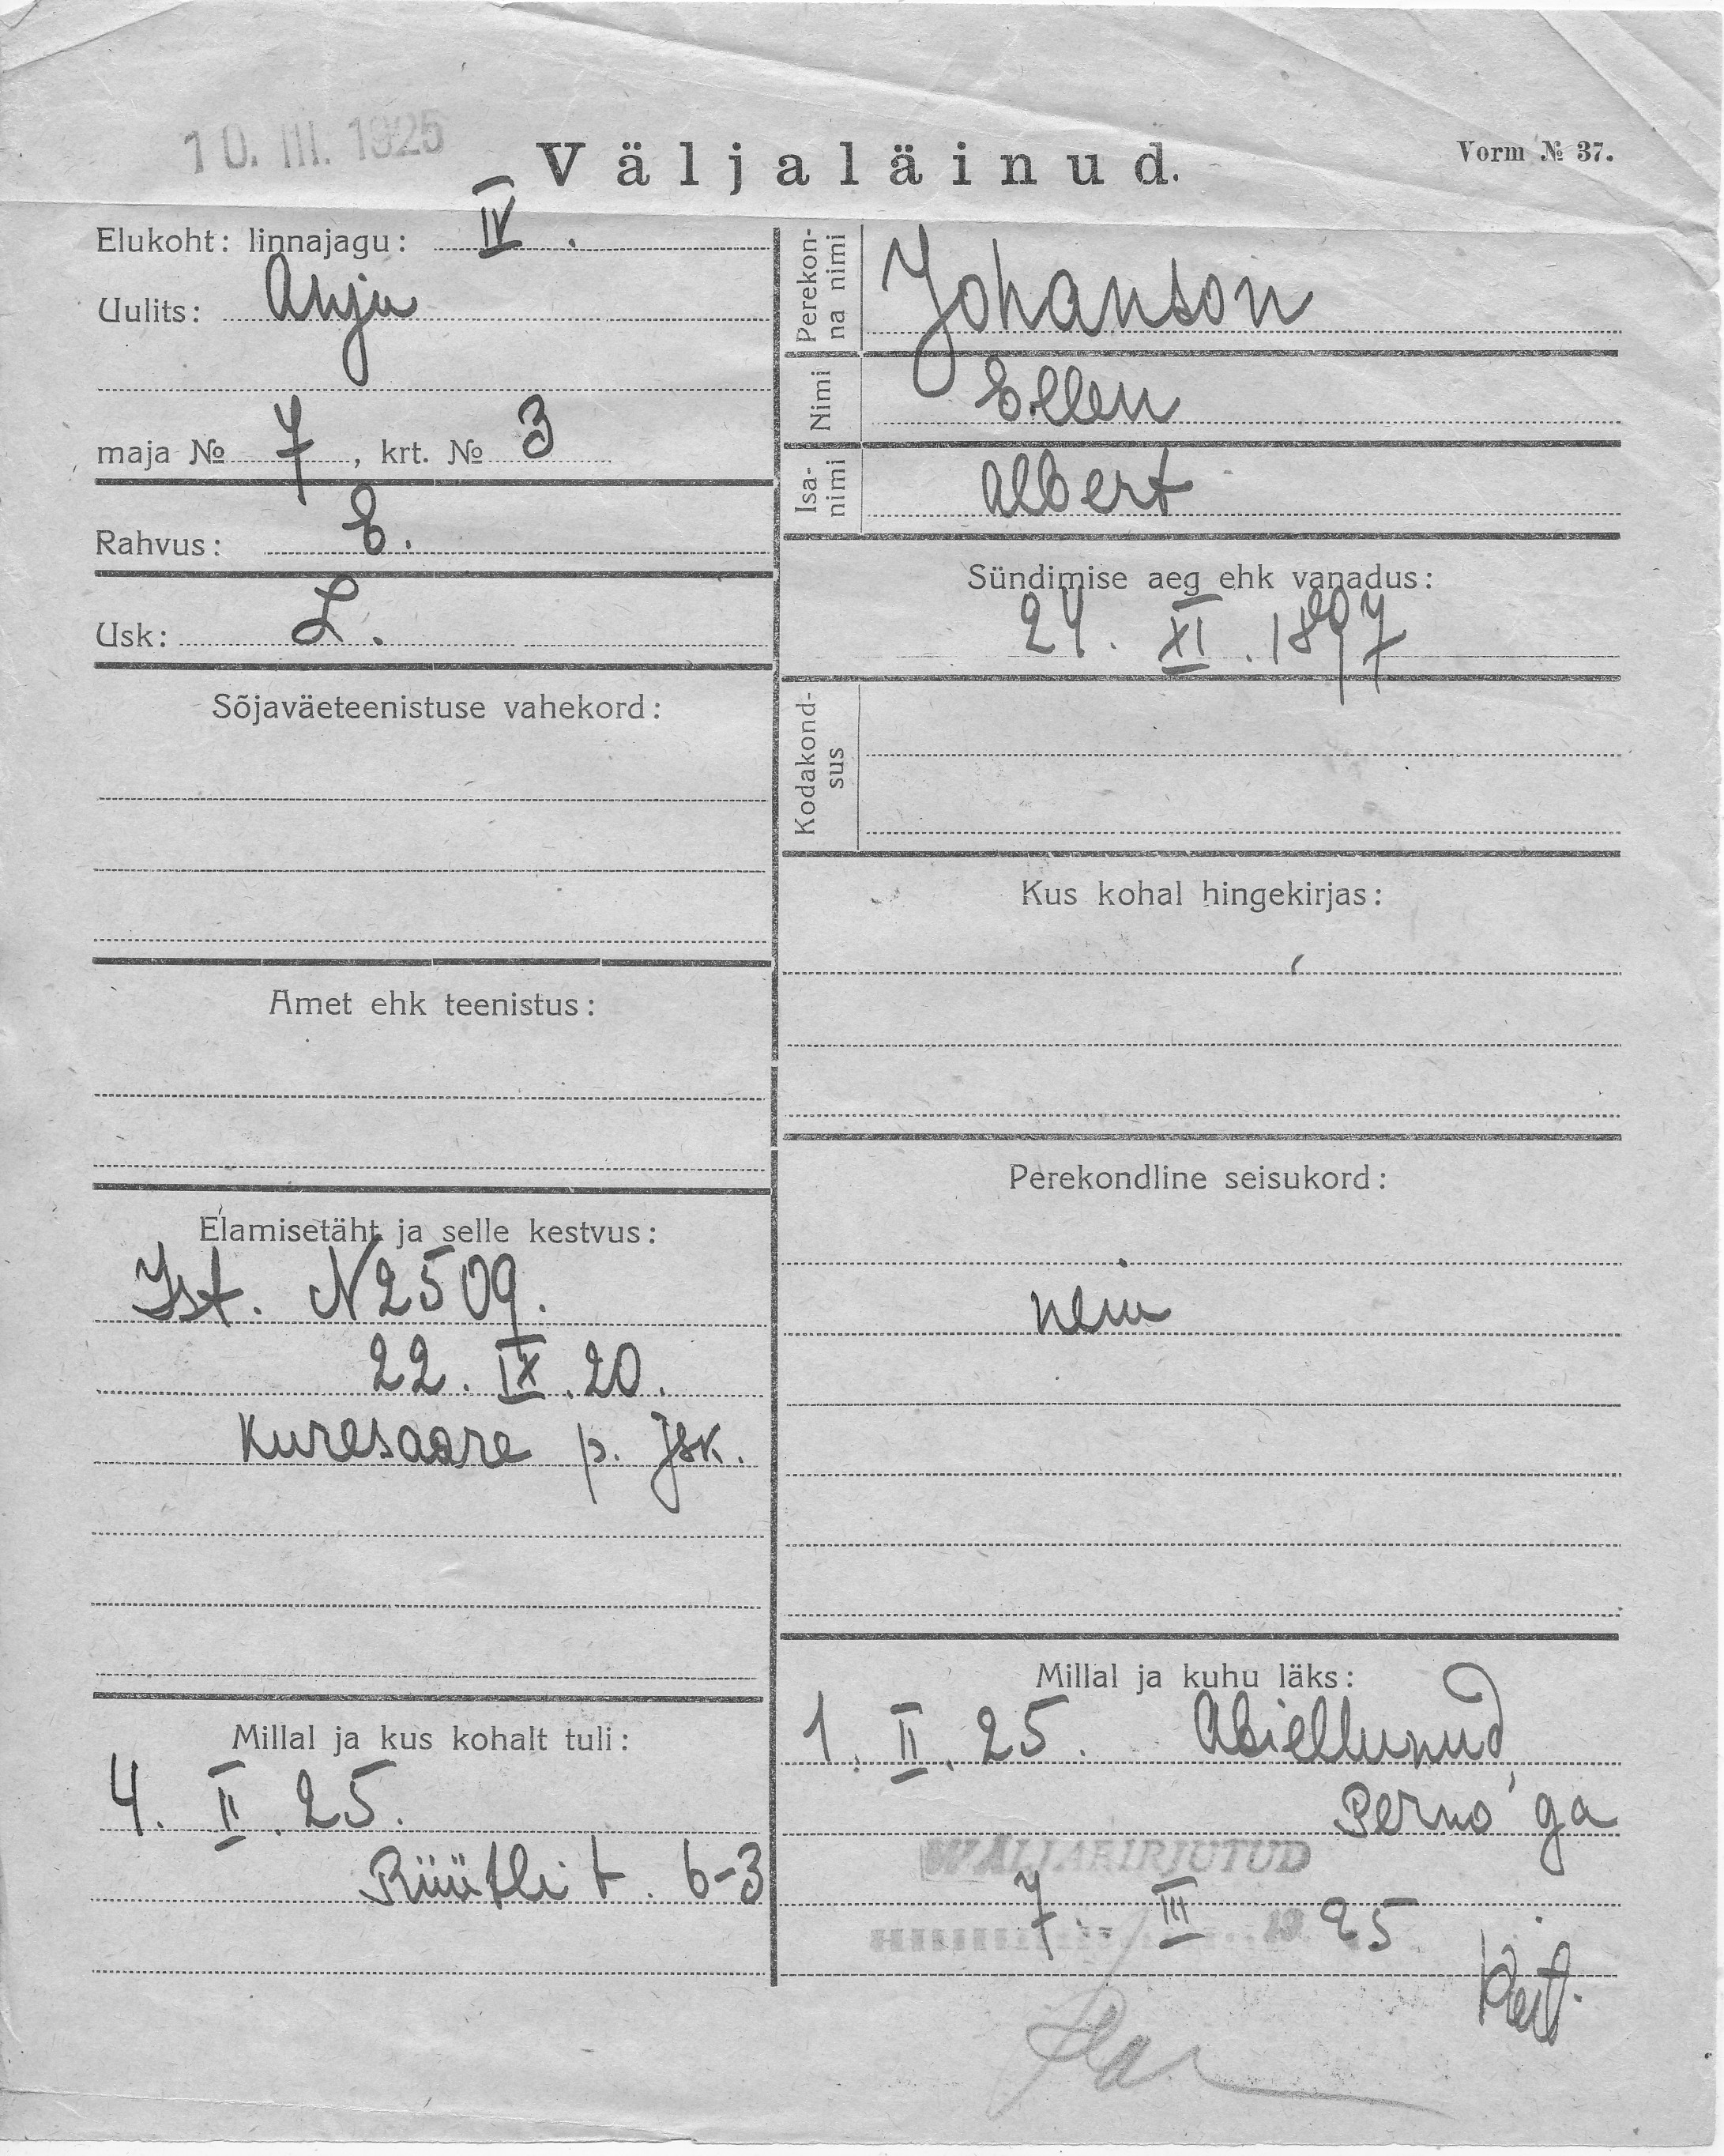 10. III. 1925
Väljaläinud.
Vorm № 37.
Elukoht: linnajagu: IV.
Uulits: Ahju
maja № 7, krt. № 3
Rahvus: E.
Usk: L.
Sõjaväeteenistuse vahekord:
Amet ehk teenistus:
Elamisetäht ja selle kestvus:
Ist. N 2509.
22. IX. 20.
Kuresaare p. jsk.
Millal ja kus kohalt tuli:
4. II. 25.
Rüütli t. 6-3
Perekon-
na nimi
Johanson
Nimi
Ellen
Isa-
nimi
Albert
Sündimise aeg ehk vanadus:
24. XI. 1897
Kodakond-
sus
Kus kohal hingekirjas:
Perekondline seisukord:
nein
Millal ja kuhu läks:
1. II. 25. Abiellunud
Perno'ga
WÄLJAKIRJUTUD
7. III 19 25